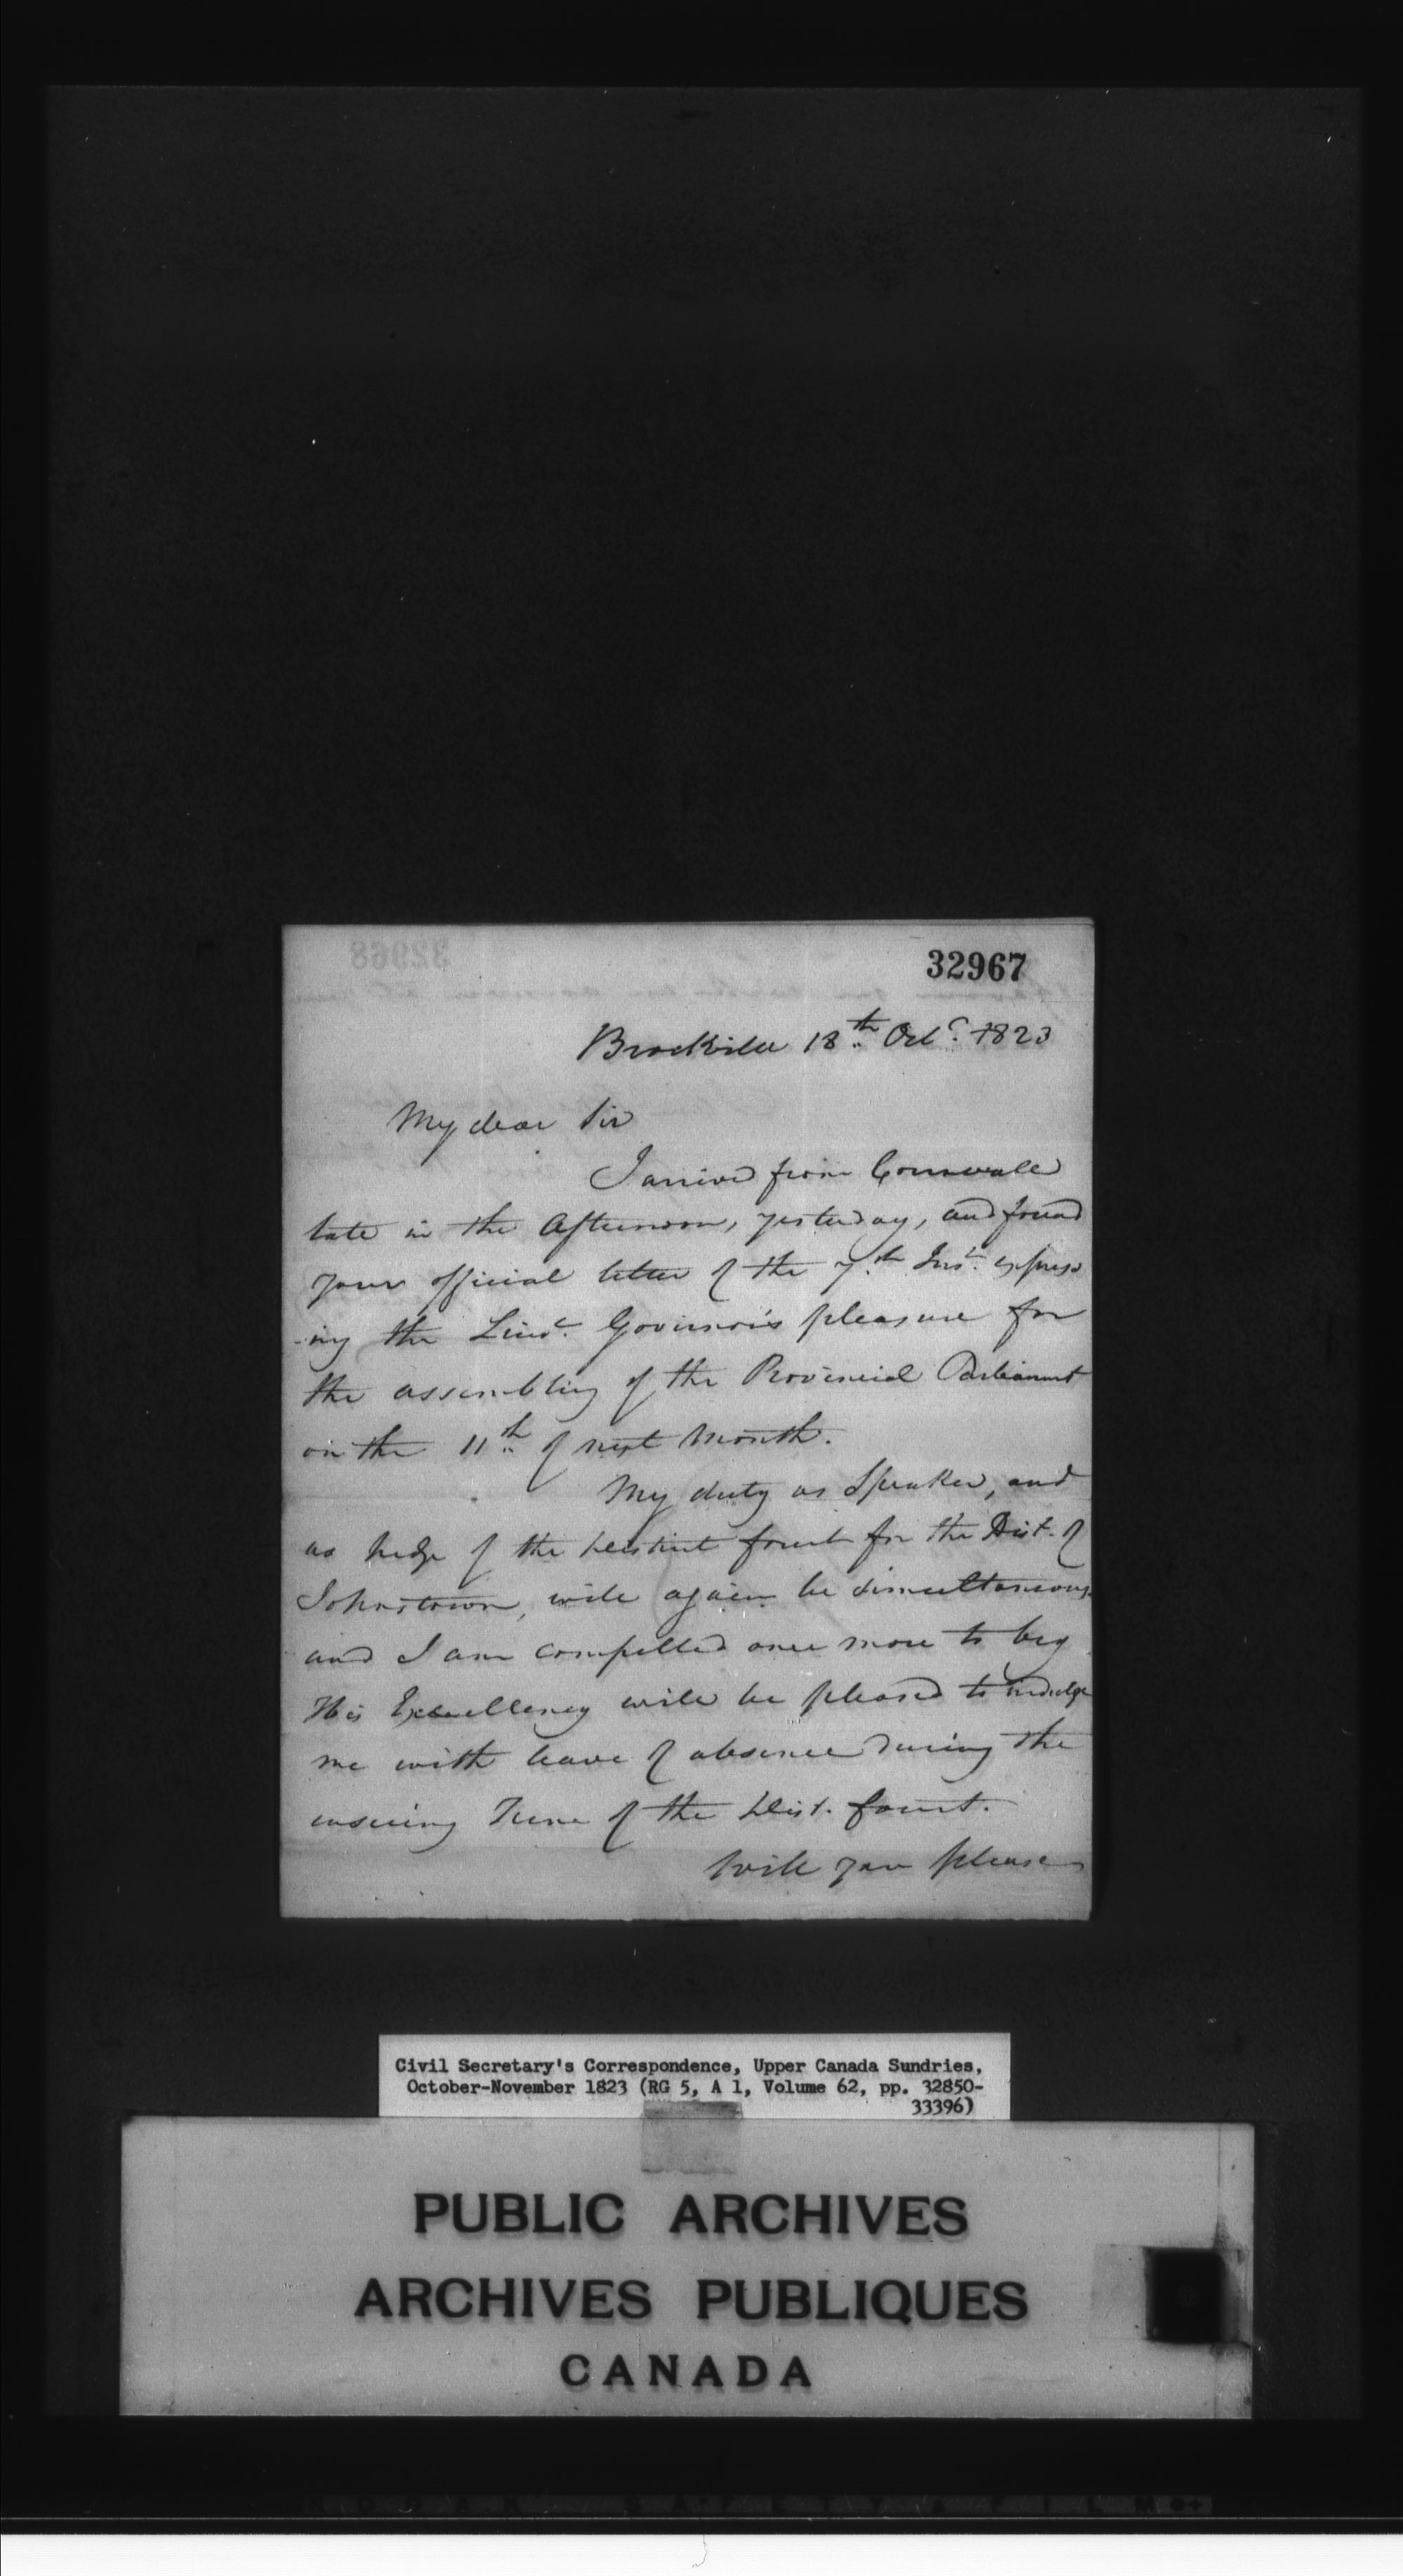 32967
Brockville 18th Octr. 1823
My dear Sir
I arrived from Cornwall
late in the Afternoon, yesterday, and found
your official letter of the 7th Inst. express
-ing the Lieut. Governor's pleasure for
the assembling of the Provincial Parliament
on the 11th of next Month.
My duty as Speaker, and
as Judge of the District Court for the Dist. of
Johnstown, will again be simultaneous,
and I am compelled once more to beg
His Excellency will be pleased to indulge
me with leave of absence during the
ensuing Term of the Dist. Court.
Will you please
Civil Secretary's Correspondence, Upper Canada Sundries,
October-November 1823 (RG 5, A 1, Volume 62, pp. 32850-
33396)
PUBLIC ARCHIVES
ARCHIVES PUBLIQUES
CANADA